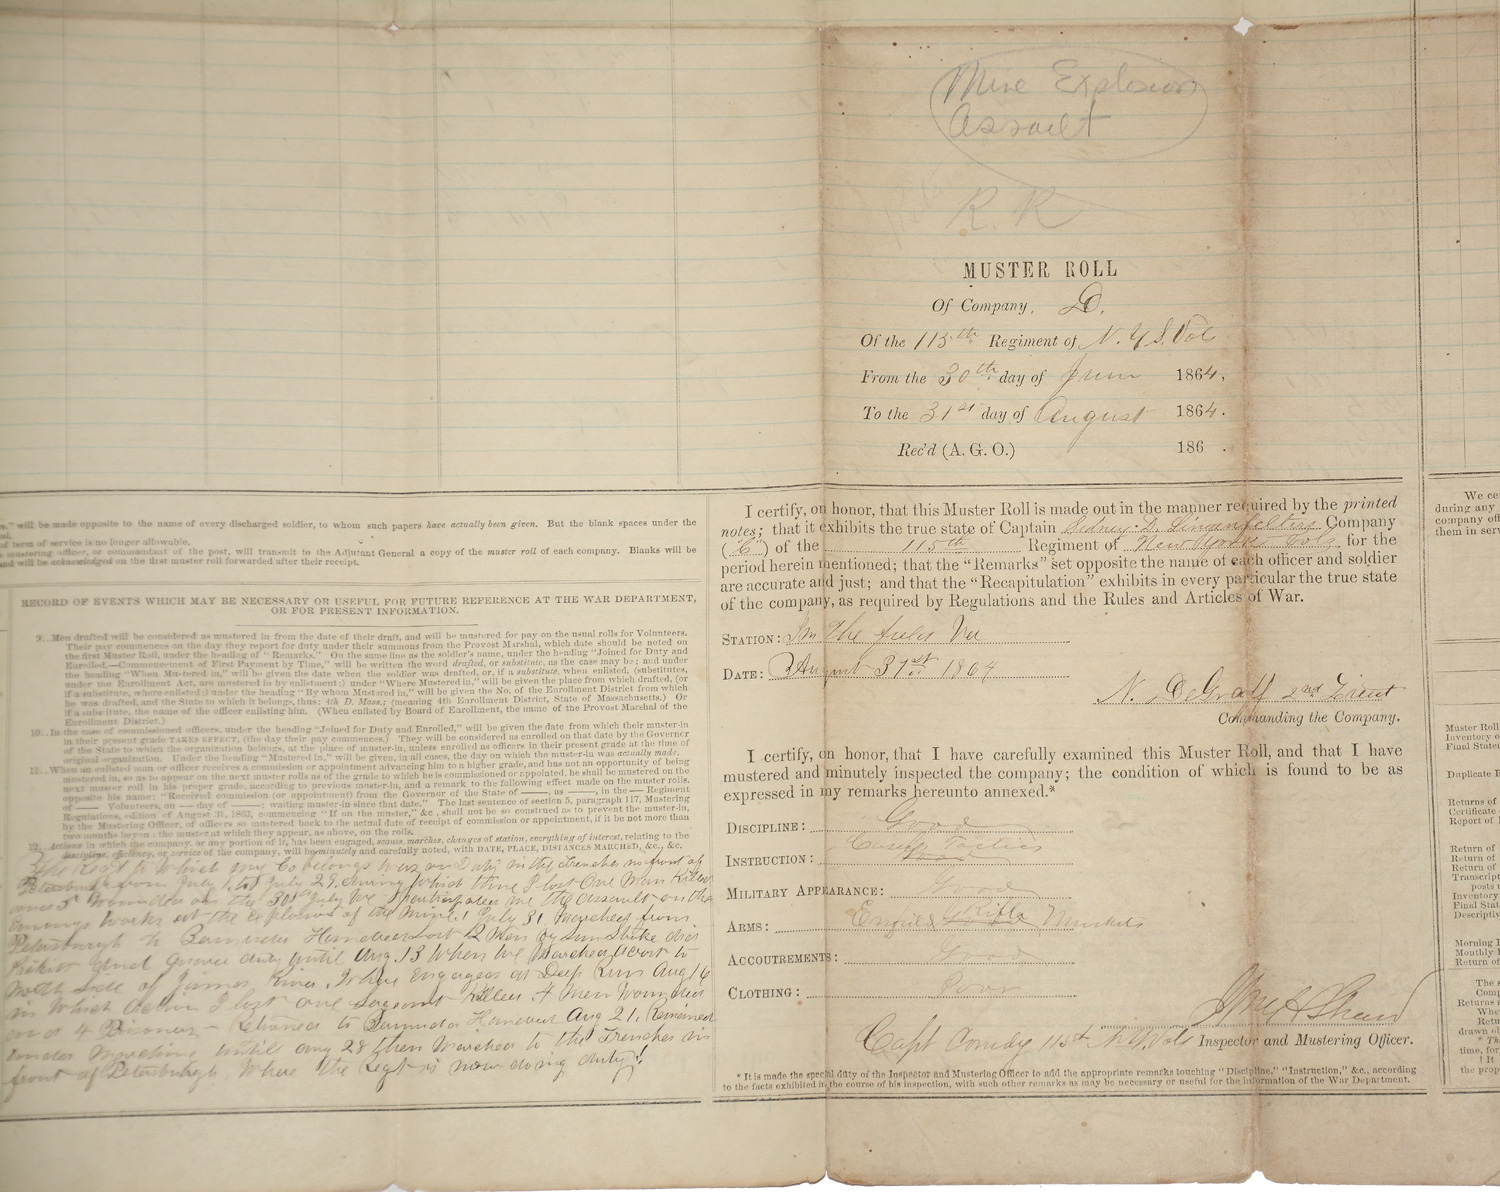 Mine Explosion
Assault
R. R
MUSTER ROLL
Of Company, D.
Of the 115th Regiment of N. Y. S. Vols
From the 30th day of June 1864,
To the 31st day of August 1864.
Rec'd (A. G. O.) 186 .
" will be made opposite to the name of every discharged soldier, to whom such papers have actually been given. But the blank spaces under the
of term of service is no longer allowable.
mustering officer, or commandant of the post, will transmit to the Adjutant General a copy of the muster roll of each company. Blanks will be
and will be acknowledged on the first muster roll forwarded after their receipt.
RECORD OF EVENTS WHICH MAY BE NECESSARY OR USEFUL FOR FUTURE REFERENCE AT THE WAR DEPARTMENT,
OR FOR PRESENT INFORMATION.
9..Men drafted will be considered as mustered in from the date of their draft, and will be mustered for pay on the usual rolls for Volunteers.
Their pay commences on the day they report for duty under their summons from the Provost Marshal, which date should be noted on
the first Muster Roll, under the heading of "Remarks." On the same line as the soldier's name, under the heading "Joined for Duty and
Enrolled.—Commencement of First Payment by Time," will be written the word drafted, or substitute, as the case may be; and under
the heading "When Mustered in," will be given the date when the soldier was drafted, or, if a substitute, when enlisted, (substitutes,
under the Enrollment Act, are mustered in by enlistment;) under "Where Mustered in," will be given the place from which drafted, (or
if a substitute, where enlisted;) under the heading "By whom Mustered in," will be given the No. of the Enrollment District from which
he was drafted, and the State to which it belongs, thus: 4th D. Mass.; (meaning 4th Enrollment District, State of Massachusetts.) Or
if a substitute, the name of the officer enlisting him. (When enlisted by Board of Enrollment, the name of the Provost Marshal of the
Enrollment District.)
10..In the case of commissioned officers, under the heading "Joined for Duty and Enrolled," will be given the date from which their muster-in
in their present grade TAKES EFFECT, (the day their pay commences.) They will be considered as enrolled on that date by the Governor
of the State to which the organization belongs, at the place of muster-in, unless enrolled as officers in their present grade at the time of
original organization. Under the heading "Mustered in," will be given, in all cases, the day on which the muster-in was actually made.
11..When an enlisted man or officer receives a commission or appointment advancing him to a higher grade, and has not an opportunity of being
mustered in, so as to appear on the next muster rolls as of the grade to which he is commissioned or appointed, he shall be mustered on the
next muster roll in his proper grade, according to previous muster-in, and a remark to the following effect made on the muster rolls,
opposite his name: "Received commission (or appointment) from the Governor of the State of ——, as ——, in the — Regiment
of —— Volunteers, on — day of ——; waiting muster-in since that date." The last sentence of section 5, paragraph 117, Mustering
Regulations, edition of August 31, 1863, commencing "If on the muster," &c., shall not be so construed as to prevent the muster-in,
by the Mustering Officer, of officers so mustered back to the actual date of receipt of commission or appointment, if it be not more than
two months beyond the muster at which they appear, as above, on the rolls.
12..Actions in which the company, or any portion of it, has been engaged, scouts, marches, changes of station, everything of interest, relating to the
discipline, efficiency, or service of the company, will be minutely and carefully noted, with DATE, PLACE, DISTANCES MARCHED, &c., &c.
The Regt to which my Co belongs was on Duty in the trenches in front of
Petersburgh from July 1 to July 29, during which time I lost One Man Killed
and 5 Wounded on the 30th July We participated in the assault on the
Enemys works at the explosion of the Mine! July 31 Marched from
Petersburgh to Bermuda Hundred Lost 12 Men by Sun Stroke did
Picket and guard duty until Aug. 13 When We Marched to
north side of James River, Where Engaged at Deep Run Aug 16
in Which action I lost one Sergeant Killed 4 Men Wounded
and 4 Prisoners – Returned to Bermuda Hundred Aug 21, Remained
under untill Aug 28 then Marched to the Trenches in
front of Petersburgh, Where the Regt is now doing duty!
I certify, on honor, that this Muster Roll is made out in the manner required by the printed
notes; that it exhibits the true state of Captain Sidney D. Lingenfelters Company
("C") of the 115th Regiment of New York Vols, for the
period herein mentioned; that the "Remarks" set opposite the name of each officer and soldier
are accurate and just; and that the "Recapitulation" exhibits in every particular the true state
of the company, as required by Regulations and the Rules and Articles of War.
STATION: In the field Va
DATE: August 31st 1864
N. DeGraff 2nd Lieut
Commanding the Company.
I certify, on honor, that I have carefully examined this Muster Roll, and that I have
mustered and minutely inspected the company; the condition of which is found to be as
expressed in my remarks hereunto annexed.*
DISCIPLINE: Good
INSTRUCTION: Casey's Tactics
MILITARY APPEARANCE: Good
ARMS: Enfield Rifle Muskets
ACCOUTREMENTS: Good
CLOTHING: Poor
Capt Comdg 115th N.Y. Vols Inspector and Mustering Officer.
* It is made the special duty of the Inspector and Mustering Officer to add the appropriate remarks touching "Discipline," "Instruction," &c., according
to the facts exhibited in the course of his inspection, with such other remarks as may be necessary or useful for the information of the War Department.
We ce
during any
company off
them in serv
Muster Roll
Inventory o
Final State
Duplicate R
Returns of
Certificate
Report of
Return of
Return of
Transcript
posts
Inventory
Final Stat
Descriptiv
Morning
Monthly
Return of
The s
Comp
Returns a
Whe
Retu
drawn of
* Th
time, for
! It
the prop